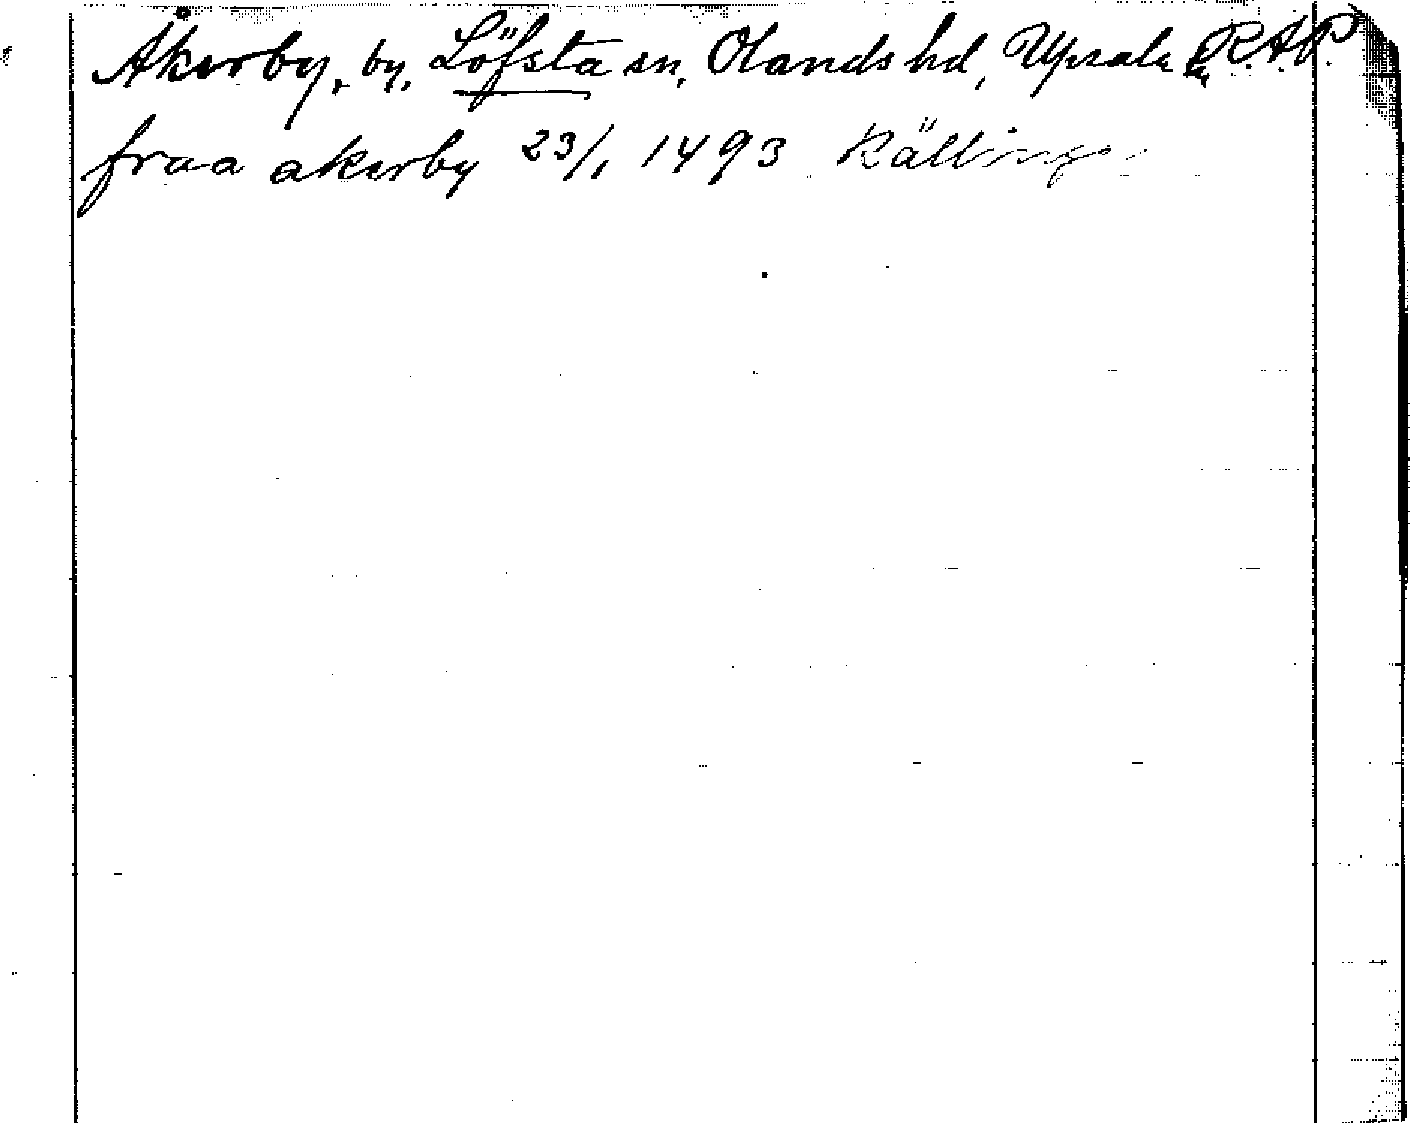 Åkerby, by, Löfsta sn, Olands hd, Upsala län R.A.P.
fraa akerby 23/1 1493 Källinge